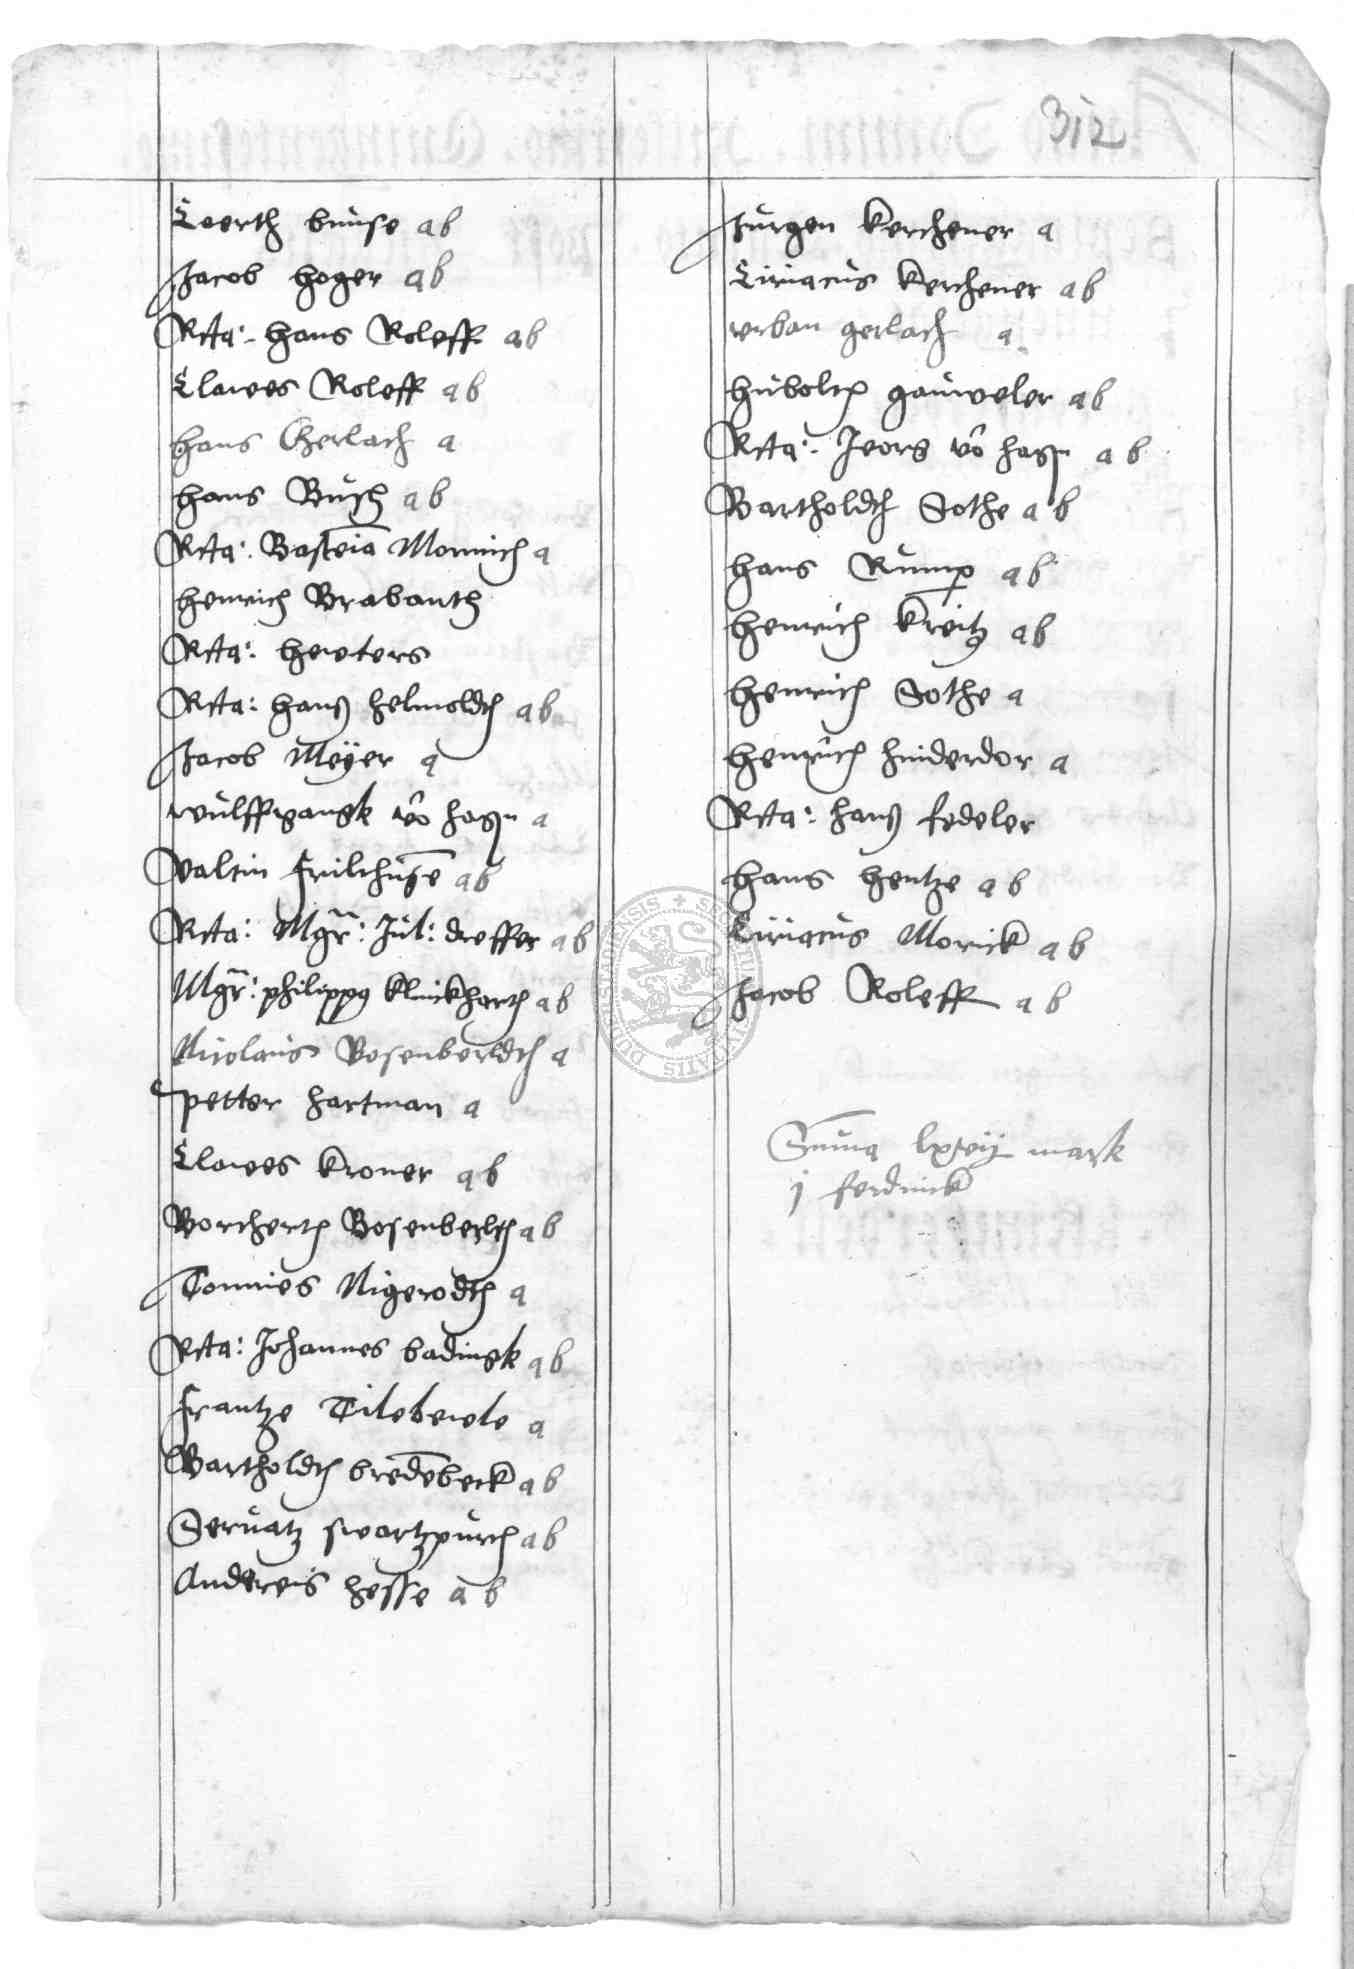 312
Coerth buse ab
Jacob Hoger ab
Rcta: Hans Roleff ab
Clawes Roleff ab
Hans Gerlach a
Hans Busch ab
Rcta: Basteia Monnich a
Henrich Brabanth
Rcta: Hewters
Rcta: Hanß Helmoldth ab
Jacob Meÿer a
Wulffgangk vo Hagn a
Valtin Frilchuse ab
Rcta: Mgr: Jul: dreffer ab
Mgr: philippg Klinckharth ab
Nicolaus Bosenberldth a
petter Hartman a
Clawes Kroner ab
Borcherth Bosenberlth ab
Tonnies Nigerodth a
Rcta: Johannes badingk ab
Frantze Tilebewle a
Bartholdth bredebeck ab
Servatz swartzpurch ab
Andreis Hesse ab
Jurgen Kerchener a
Ciriacus Kerchener ab
Urban Gerlach a
Huboltth gauweler ab
Rcta: Jeorg vo Hagn ab
Bartholdth Sothe ab
Hans Rump ab
Henrich Kreitz ab
Henrich Sothe a
Henrich Hinderdor a
Rcta: Hanß fedeler
Hans Hentze ab
Ciriacus Morick ab
Jacob Roleff ab
Suma mark
j ferdinck